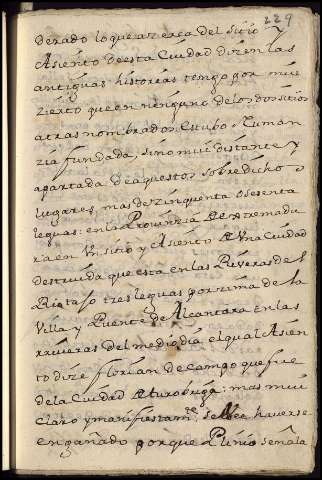 229
derado lo que azerca del sitio y
Asiento deesta Ciudad dizen las
antiguas historias tengo por mui
zierto que en ninguno de los dos sitios
atras nombrados Estubo Numan
zia fundada, sino mui distante y
apartada de aquestos sobre dichos
lugares mas de zinquenta o sesenta
leguas: en la Prouinzia de extremadu
ra en Un sitio y Asiento de Una Ciudad
destruida que esta en las Riveras del
Rio tajo tres leguas por zima de la
Villa y Puente de Alcantara en las
rriueras del mediodia el qual Asien
to dize florian de campo que fue
de la Ciudad de turobriga; mas mui
claro y manifiestam.te se vee hauerse
engañado porque Plinio señala